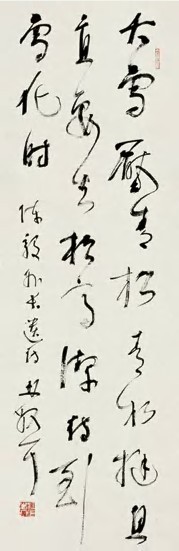 大雪壓青松青松挺且
直要知松高潔待到
雪化時
陳毅外長遺詩 林散耳